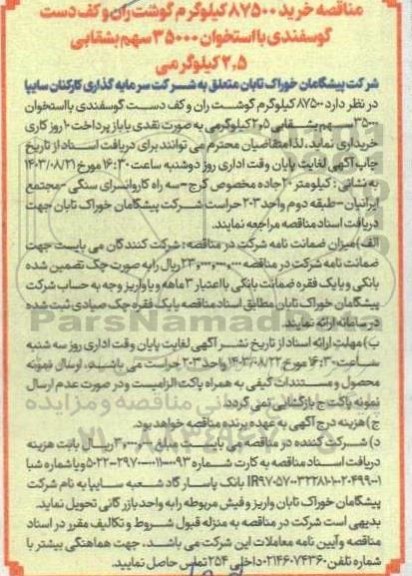 مناقصه خرید ۸۷۵۰۰ کیلوگرم گوشت ران و کف دست
گوسفندی با استخوان ۳۵۰۰۰ سهم بشقابی
۲٫۵ کیلوگرمی
شرکت پیشگامان خوراک تابان متعلق به شرکت سرمایه گذاری کارکنان سایپا
در نظر دارد ۸۷۵۰۰ کیلوگرم گوشت ران و کف دست گوسفندی با استخوان
۳۵۰۰۰ سهم بشقابی ۲٫۵ کیلوگرمی به صورت نقدی یا باز پرداخت ۱۰ روز کاری
خریداری نماید. لذا متقاضیان محترم می توانند برای دریافت اسناد از تاریخ
چاپ آگهی لغایت پایان وقت اداری روز دوشنبه ساعت ۱۶:۳۰ مورخ ۱۴۰۳/۰۸/۲۱
به نشانی: کیلومتر ۲۰ جاده مخصوص کرج-سه راه کاروانسرای سنگی-مجتمع
ایرانیان-طبقه دوم واحد ۲۰۳ حراست شرکت پیشگامان خوراک تابان جهت
دریافت اسناد مناقصه مراجعه نمایند.
الف) میزان ضمانت نامه شرکت در مناقصه: شرکت کنندگان می بایست جهت
ضمانت نامه شرکت در مناقصه ریال را به صورت چک تضمین شده
بانکی و یا یک فقره ضمانت بانکی با اعتبار ۳ ماهه و یا واریز وجه به حساب شرکت
پیشگامان خوراک تابان مطابق اسناد مناقصه یا یک فقره چک صیادی ثبت شده
در سامانه ارائه نمایند.
ب) مهلت ارائه اسناد از تاریخ نشر آگهی لغایت پایان وقت اداری روز سه شنبه
ساعت ۱۶:۳۰ مورخ ۱۴۰۳/۰۸/۲۲ واحد ۲۰۳ حراست می باشد. ارسال نمونه
محصول و مستندات کیفی به همراه پاکت الزامیست و در صورت عدم ارسال
نمونه پاکت ج بازگشایی نمی گردد.
ج) هزینه درج آگهی به عهده برنده مناقصه خواهد بود.
د) شرکت کننده در مناقصه می بایست مبلغ ریال بابت هزینه
دریافت اسناد مناقصه به کارت شماره و یا شماره شبا
بانک پاسارگاد شعبه سایپا به نام شرکت
پیشگامان خوراک تابان واریز و فیش مربوطه را به واحد بازرگانی تحویل نماید.
بدیهی است شرکت در مناقصه به منزله قبول شروط و تکالیف مقرر در اسناد
مناقصه و آیین نامه معاملات این شرکت می باشد، جهت هماهنگی بیشتر با
شماره تلفن ۰۲۱۴۶۰۷۴۳۶۰ داخلی ۲۵۴ تماس حاصل نمایید.
ParsNamadData